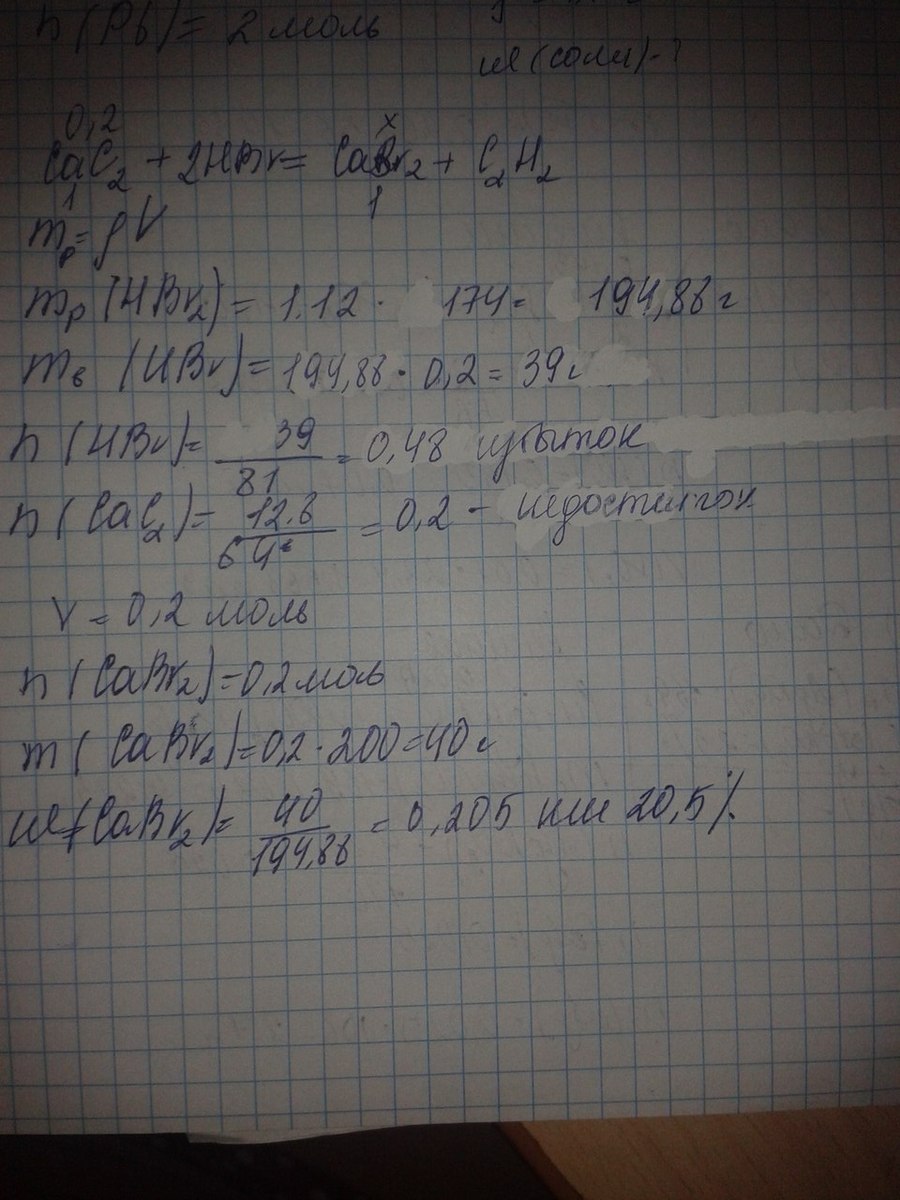 n (Pb) = 2 моль
w (соли) - ?
0,2 x
CaC2 + 2HBr = CaBr2 + C2H2
1 1
mp = ρV
mp (HBr2) = 1.12 · 174 = 194,88 г
mв (HBr) = 194,88 · 0,2 = 39 г
n (HBr) = 39/81 = 0,48 избыток
n (CaC2) = 12.8/64 = 0,2 - недостаток
V = 0,2 моль
n (CaBr2) = 0,2 моль
m (CaBr2) = 0,2 · 200 = 40 г
w (CaBr2) = 40/194,88 = 0,205 или 20,5%